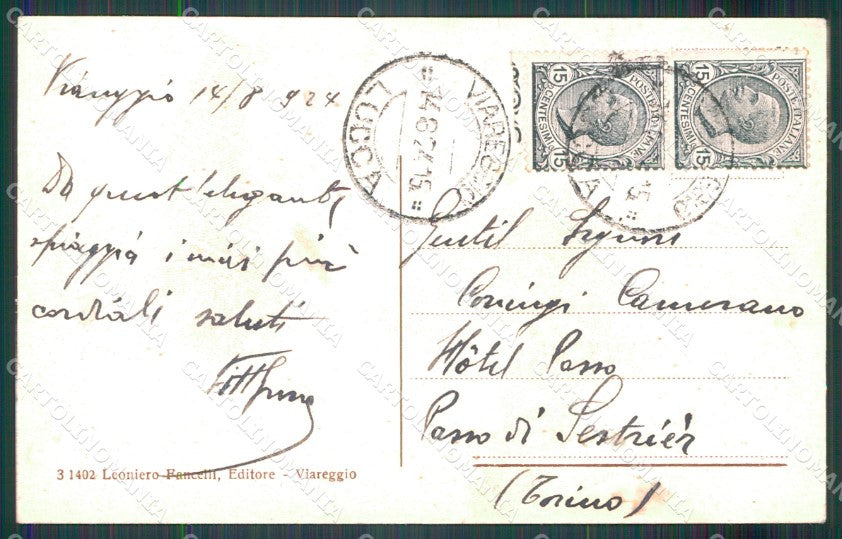 Viareggio 14/8 924
Da quest'elegante
spiaggia i miei più
cordiali saluti
VIAREGGIO
14.8.24.15
LUCCA
15 CENTESIMI 15
POSTE ITALIANE
15 CENTESIMI 15
POSTE ITALIANE
Gentil Signora
Camerano
Hôtel Passo
Passo di Sestrièr
(Torino)
3 1402 Leoniero Fancelli, Editore - Viareggio
CARTOLINOMANIA